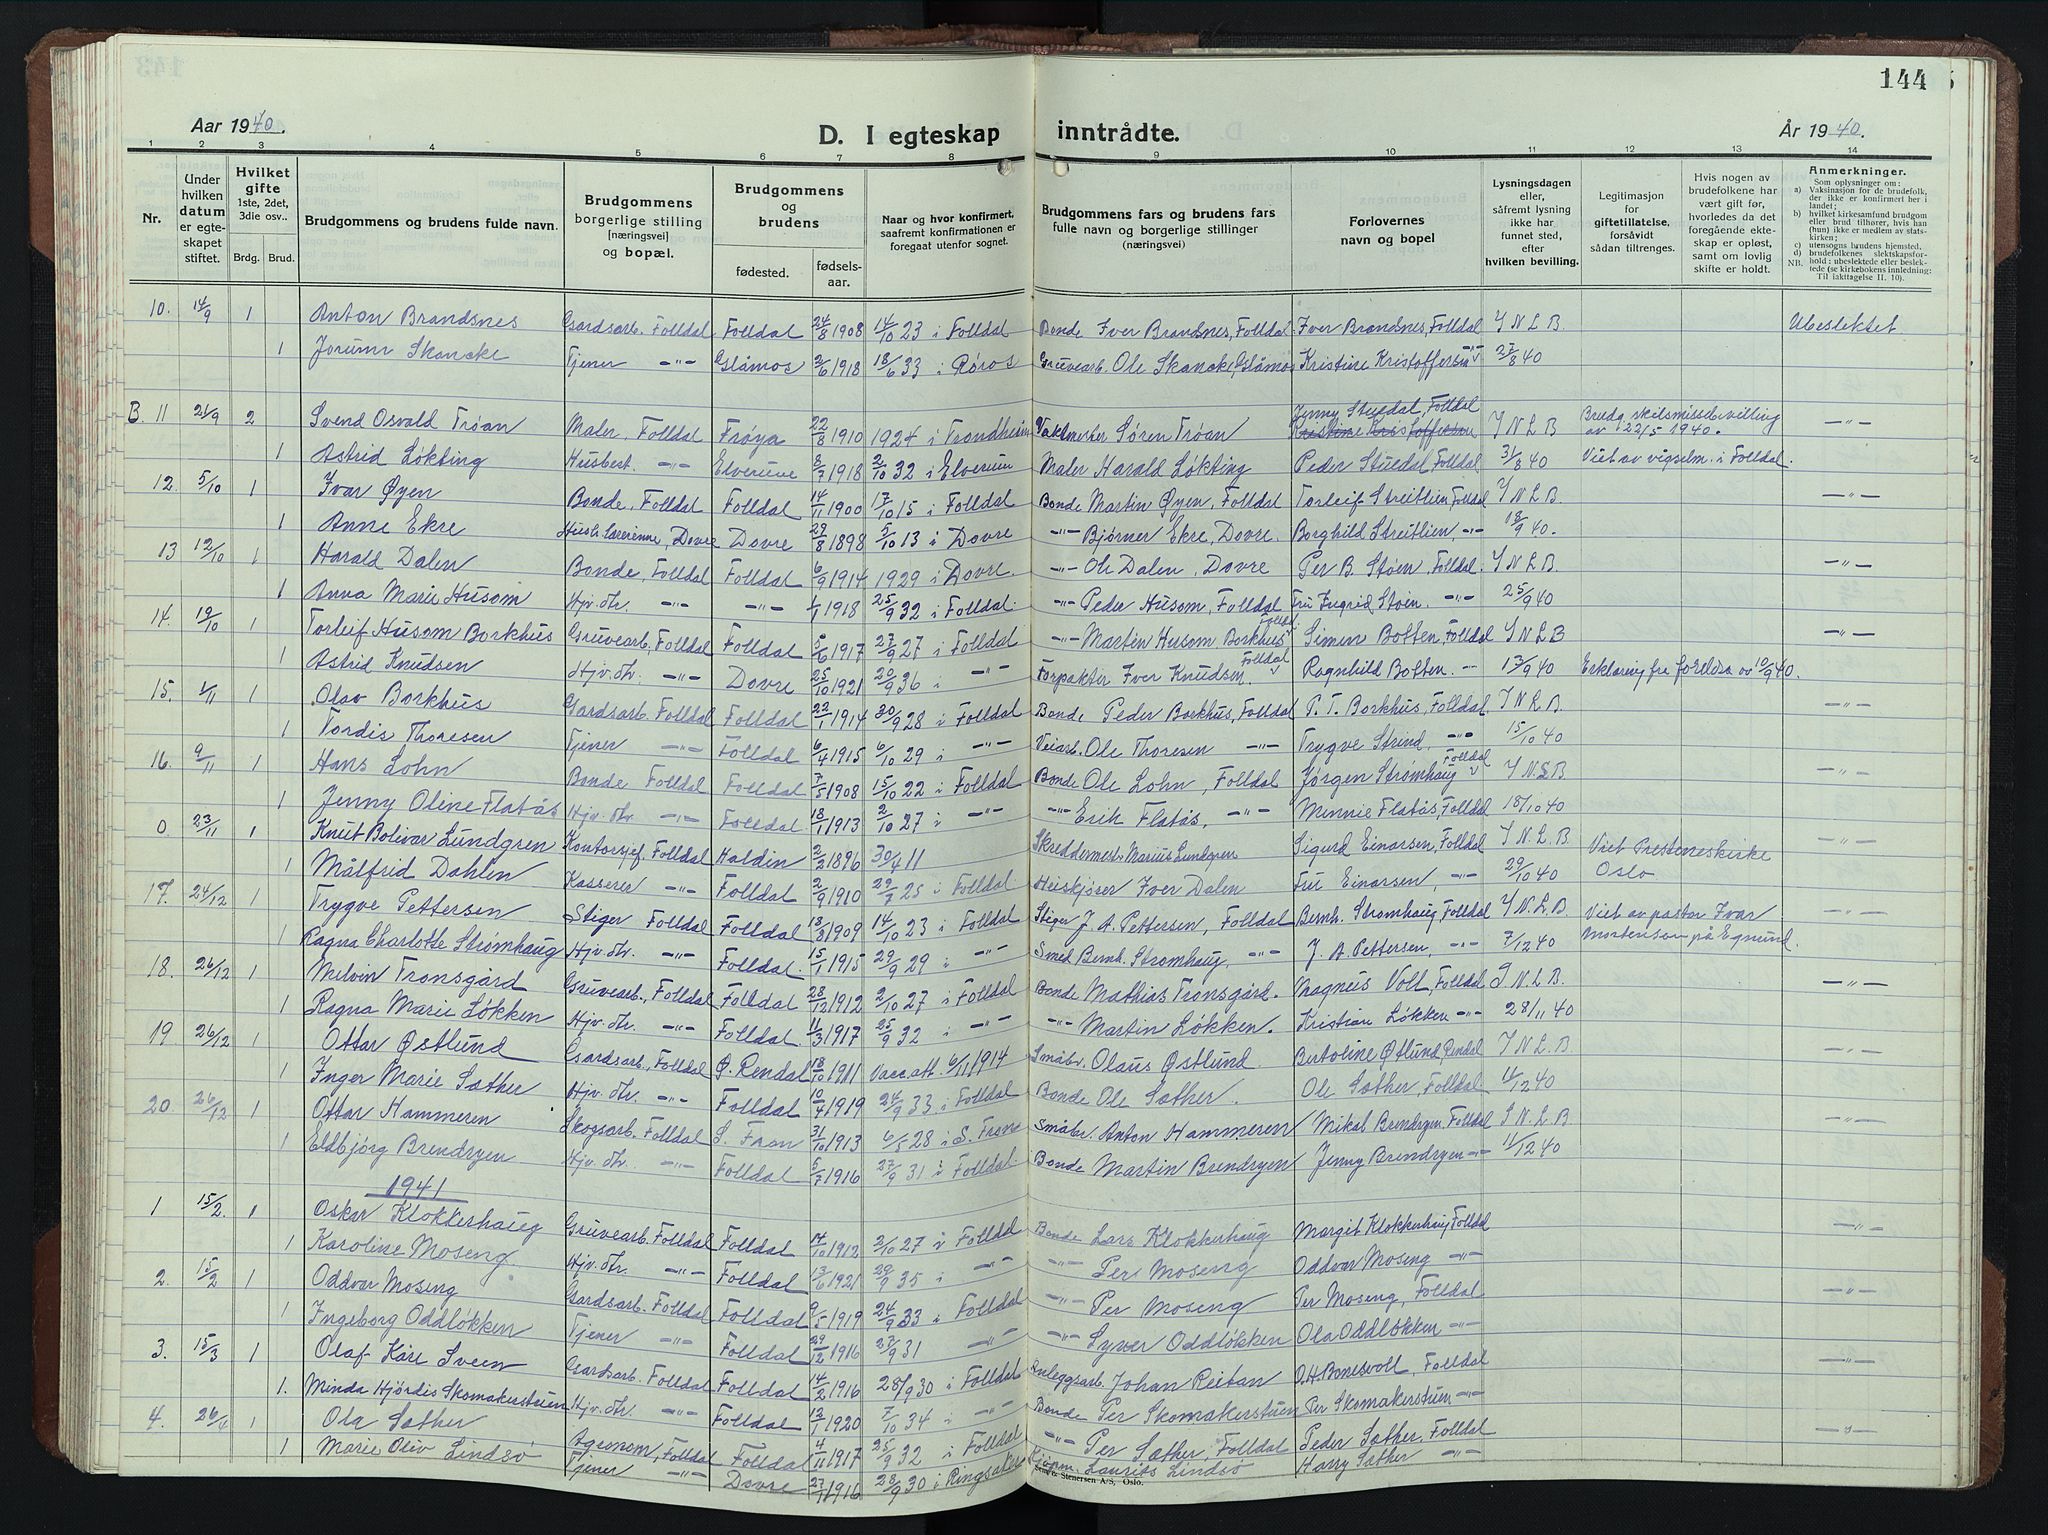 144
Aar 1940.
D. I egteskap inntrådte.
År 19 40.
1 2 3 4 5 6 7 8 9 10 11 12 13 14
Nr.
Under hvilken datum er egteskapet stiftet.
Hvilket gifte 1ste, 2det, 3die osv..
Brdg. Brud.
Brudgommens og brudens fulde navn.
Brudgommens borgerlige stilling [næringsvei] og bopæl.
Brudgommens og brudens
fødested. fødsels-aar.
Naar og hvor konfirmert, saafremt konfirmationen er foregaat utenfor sognet.
Brudgommens fars og brudens fars fulle navn og borgerlige stillinger (næringsvei)
Forlovernes navn og bopel
Lysningsdagen eller, såfremt lysning ikke har funnet sted, efter hvilken bevilling.
Legitimasjon for giftetillatelse, forsåvidt sådan tiltrenges.
Hvis nogen av brudefolkene har vært gift før, hvorledes da det foregående ekteskap er opløst, samt om lovlig skifte er holdt.
Anmerkninger.
Som oplysninger om:
a) Vaksinasjon for de brudefolk, der ikke er konfirmert her i landet;
b) hvilket kirkesamfund brudgom eller brud tilhører, hvis han (hun) ikke er medlem av statskirken;
c) utensogns brudens hjemsted.
d) brudefolkenes slektskapsforhold: ubeslektede eller beslektede (se kirkebokens innledning: Til iakttagelse II. 10).
NB.
10. 14/9 1 Anton Brandsnes Gardsarb. Folldal Folldal 24/8 1908 14/10 23 i Folldal Bonde Iver Brandsnes, Folldal Iver Brandsnes, Folldal J N L B Ubeslektet
1 Jorunn Skancke Tjener -"- Glåmos 2/6 1918 18/6 33 i Røros Gruvearb. Ole Skancke, Glåmos Kristine Kristoffersen -"- 27/8 40
B. 11 21/9 2 Svend Osvald Trøan Maler, Folldal Frøya 22/8 1910 1924 i Trondheim Vaktmester Søren Trøan Jenny Stuedal, Folldal J N L B Brudg skilsmissebevilling av 22/5 1940. -"-
1 Astrid Løkting Husbest. -"- Elverum 8/7 1918 2/10 32 i Elverum Maler Harald Løkting Peder Stuedal, Folldal 31/8 40 Viet av vigselm. i Folldal.
12. 5/10 1 Ivar Øyen Bonde, Folldal Folldal 14/11 1900 17/10 15 i Folldal Bonde Martin Øyen, Folldal Torleif Streitlien, Folldal J N L B -"-
1 Anne Ekre Hush. lærerinne, Dovre Dovre 29/8 1898 5/10 13 i Dovre -"- Bjørner Ekre, Dovre. Borghild Streitlien, -"- 18/9 40.
13 12/10 1 Harald Dalen Bonde, Folldal Folldal 6/9 1914 1929 i Dovre. -"- Ole Dalen, Dovre Per B. Støen, Folldal. J N L B. -"-
1 Anna Marie Husom Hjv. dtr. -"- -"- 1/1 1918 25/9 32 i Folldal. -"- Peder Husom, Folldal Fru Ingrid Støen. -"- 25/9 40
14. 19/10 1 Torleif Husom Borkhus Gruvearb, Folldal Folldal 5/6 1917 27/9 27 i Folldal -"- Marten Husom Borkhus Folldal Simen Botten, Folldal J N L B -"-
1 Astrid Knudsen Hjv. dtr. -"- Dovre 25/10 1921 20/9 36 i -"- Forpakter Iver Knudsen. Folldal Ragnhild Botten. -"- 13/9 40 Erklæring fra foreldra av 10/9 40.
15. 1/11 1 Olav Borkhus Gardsarb. Folldal Folldal 22/1 1914 30/9 28 i Folldal Bonde Peder Borkhus, Folldal P. T. Borkhus, Folldal. J N L B. -"-
1 Tordis Thoresen Tjener -"- Folldal 6/4 1915 6/10 29 i -"- Veiarb. Ole Thoresen -"- Trygve Strind, -"- 15/10 40
16. 9/11 1 Hans Lohn Bonde Folldal Folldal 7/5 1908 15/10 22 i Folldal Bonde Ole Lohn, Folldal Jørgen Strømhaug Folldal J. N. L B -"-
1 Jenny Oline Flatås Hjv. dtr. -"- Folldal. 18/1 1913 2/10 27 i -"- -"- Erik Flatås, -"- Minnie Flatås, Folldal 18/10 40
0. 23/11 1 Knut Bolivar Lundgren Kontorsjef, Folldal Haldin 2/2 1896 30/4 11 Skreddermest. Marius Lundgren Sigurd Einarsen, Folldal J. N. L. B. Viet Prestenes kirke -"-
1 Målfrid Dahlen Kasserer -"- Folldal 2/9 1910 29/7 25 i Folldal Heiskjører Iver Dalen Fru Einarsen, -"- 29/10 40 Oslo
17. 24/12 1 Trygve Pettersen Stiger Folldal Folldal 18/8 1909 14/10 23 i Folldal Stiger J. A. Pettersen, Folldal Bernh. Strømhaug, Folldal J. N. L. B Viet av pastor Ivar -"-
1 Ragna Charlotte Strømhaug Hjv. dtr. -"- Folldal. 15/1 1915 29/9 29 i -"- Smed Bernh. Strømhaug, -"- J. A. Pettersen, -"- 7/12 40 Mortenson på Egnund.
18. 26/12 1 Melvin Tronsgård Gruvearb, Folldal Folldal 28/12 1912 2/10 27 i Folldal Bonde Mathias Tronsgård. Magnus Voll, Folldal J N L B. -"-
1 Ragna Marie Løkken Hjv. dtr. -"- Folldal. 11/3 1917 25/9 32 i -"- -"- Martin Løkken. Kristian Løkken -"- 28/11 40
19 26/12 1 Ottar Østlund Gardsarb., Folldal Ø. Rendal 18/10 1911 Vacc. att. 6/11 1914 Småbr. Olaus Østlund Bertoline Østlund Rendal J N L. B. -"-
1 Inger Marie Sæther Hjv. dtr. -"- Folldal 10/4 1919 24/9 33 i Folldal Bonde Ole Sæther. Ole Sæther, Folldal 11/12 40
20. 26/12 1 Ottar Hammeren Skogsarb. Folldal S. Fron 31/10 1913 6/5 28 i S. Fron Småbr. Anton Hammeren Mikal Brendryen, Folldal J. N. L B -"-
1 Eldbjørg Brendryen Hjv. dtr. -"- Folldal 5/7 1916 27/9 31 i Folldal. Bonde Martin Brendryen Jenny Brendryen -"- 11/12 40
1941
1 15/2. 1 Oskar Klokkerhaug Gruvearb. Folldal Folldal 14/10 1912 2/10 27 i Folldal Bonde Lars Klokkerhaug Margit Klokkerhaug, Folldal -"-
1 Karoline Moseng Hjv. dtr. -"- Folldal 13/6 1921 29/9 35 i -"- -"- Per Moseng Oddvar Moseng -"-
2. 15/2 1 Oddvar Moseng Gardsarb. Folldal Folldal 9/5 1919 24/9 33 i Folldal -"- Per Moseng Per Moseng, Folldal -"-
1 Ingeborg Oddløkken Tjener -"- Folldal 29/12 1916 27/9 31 -"- -"- Syver Oddløkken Ola Oddløkken -"-
3. 15/3 1 Olaf Kåre Sveen Gardsarb. Folldal Folldal 14/2 1916 28/9 30 i Folldal Anleggsarb. Johan Reitan O. H. Bonesvoll, Folldal -"-
1. Minda Hjördis Skomakerstuen Hjv. dtr. -"- Folldal 12/1 1920 7/10 34 i -"- Bonde Per Skomakerstuen Per Skomakerstuen -"-
4. 26/6 1 Ola Sæther Agronom, Folldal Folldal 4/11 1917 25/9 32 i Folldal -"- Per Sæther, Folldal Peder Sæther, Folldal -"-
1 Marie Oliv Lindsø Tjener -"- Dovre 27/1 1916 28/9 30 i Ringsaker Kjøpm. Laurits Lindsø Harry Sæther -"-
Stenersen A/S, Oslo.